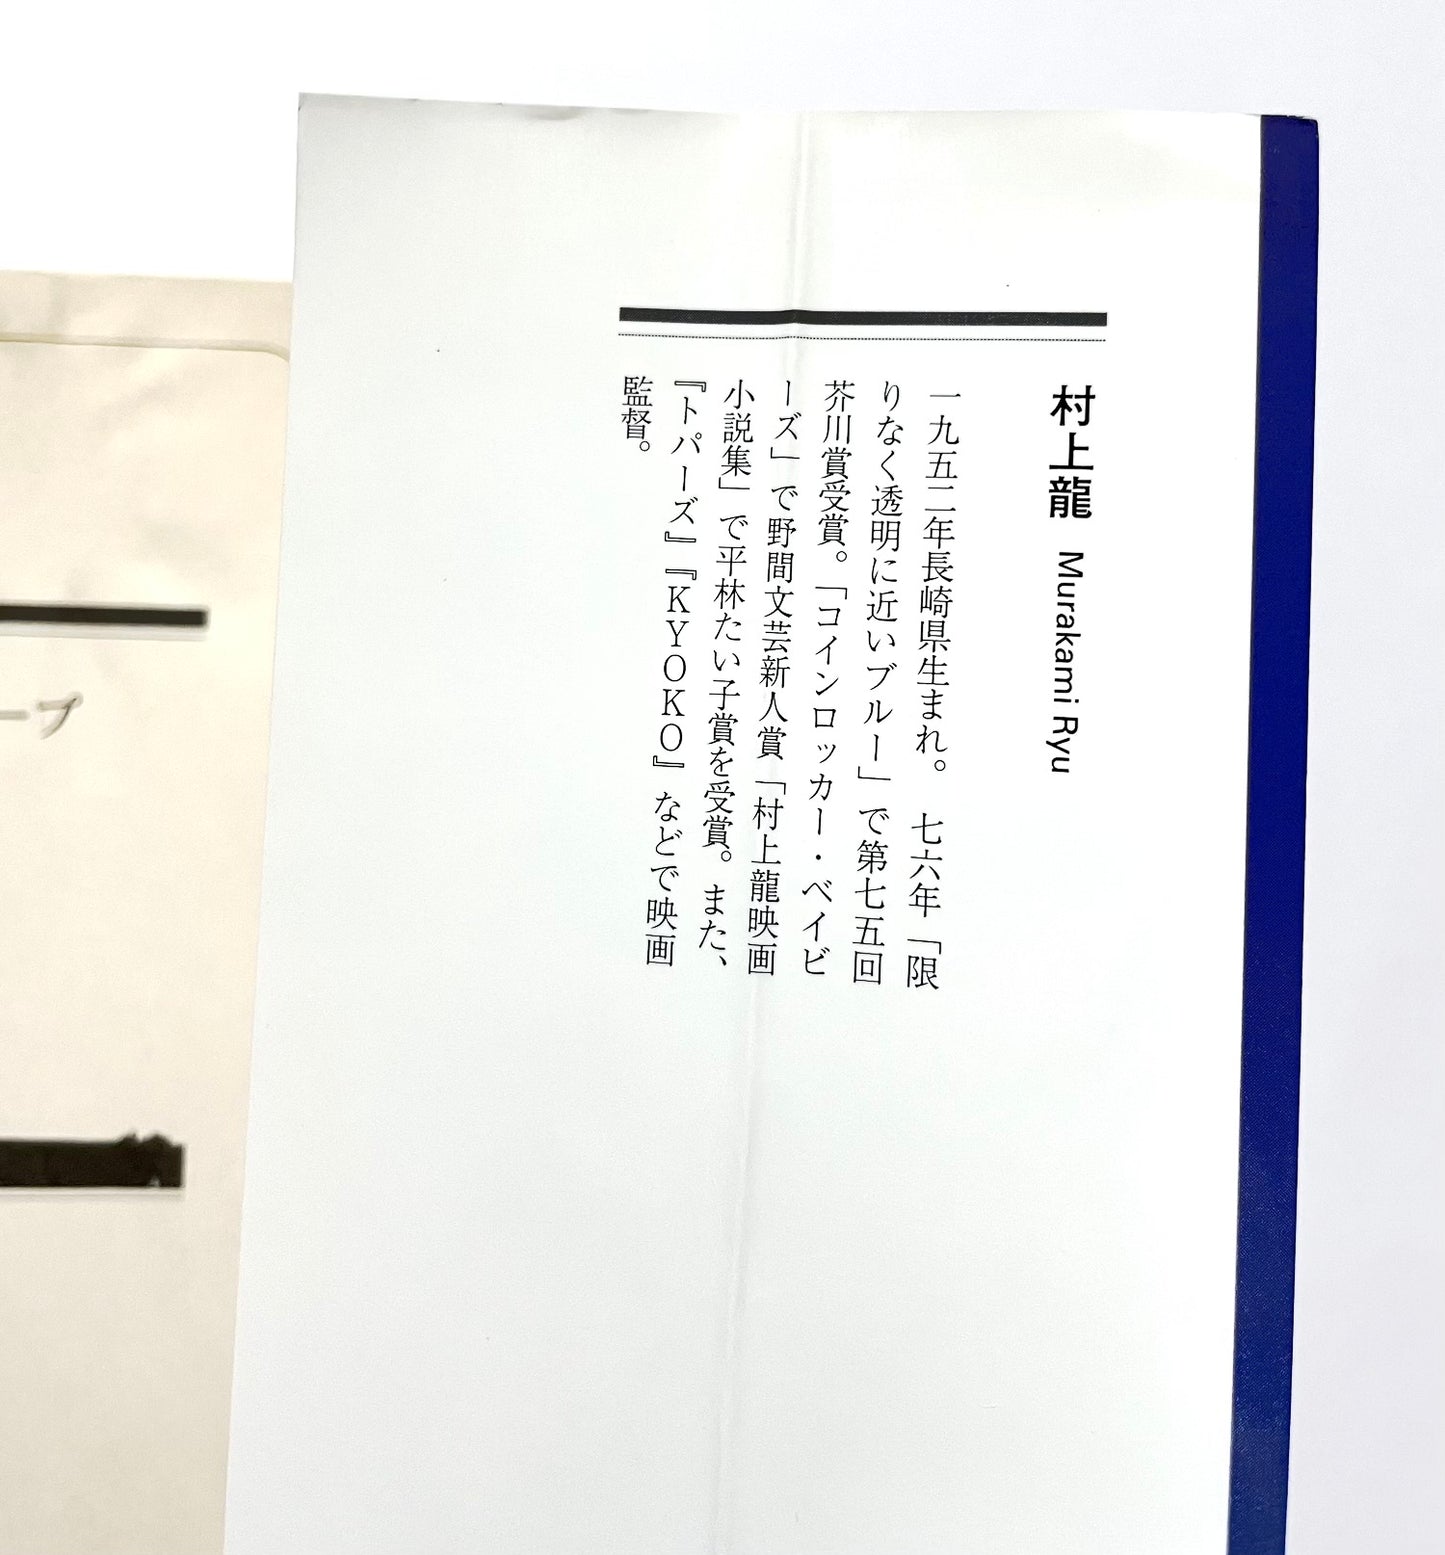 村上龍 Murakami Ryu
一九五二年長崎県生まれ。 七六年「限
りなく透明に近いブルー」で第七五回
芥川賞受賞。「コインロッカー・ベイビ
ーズ」で野間文芸新人賞「村上龍映画
小説集」で平林たい子賞を受賞。また、
『トパーズ』『KYOKO』などで映画
監督。